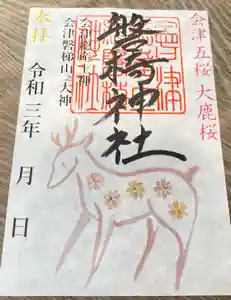 会津五桜 大鹿桜
磐椅神社
会津磐梯山之大神
奉拝
令和三年 月 日